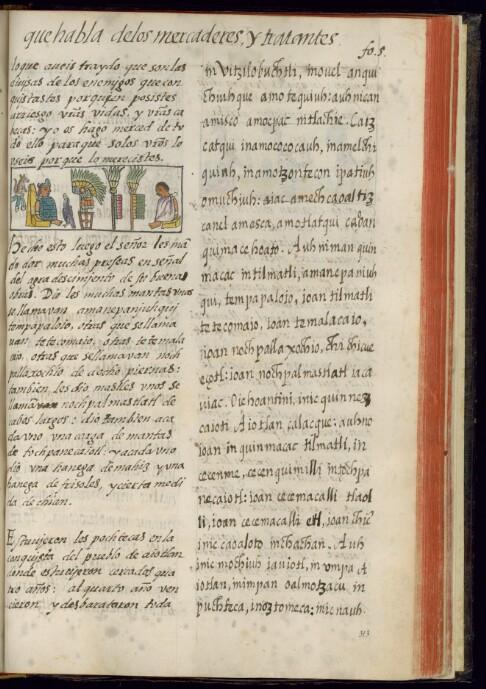 que habla de los mercaderes, y tratantes.
fo. 5.
lo que aueis traydo que son las
diuisas de los enemigos que con
quistastes por quien posistes
arriesgo vr̃as vidas, y vr̃as ca
beças: yo os hago merced de to
do ello para que solos vr̃os lo
vseis por que lo merecistes.
Hecho esto luego el señor les mã
do dar muchas preseas en señal
del agradescimjento de sus buenas
obras. Dio les muchas mantas vnas
se llamauan amanepanjuhquj
tempapaloio, otras que se llama
uan tetecomaio, otras tetemala
caio, otras que se llamauan noch
pallaxochio de ocho piernas:
tambien les dio mastles vnos se
llamã nochpalmastlatl de
cabos largos: dio tambien a ca
da vno vna carga de mantas
de tochpanecaiotl: y a cada vno
dio vna hanega de mahiz y vna
hanega de frisoles, y cierta medi
da de chian.
Estuujeron los pochtecas en la
conquista del pueblo de aiotlan
donde estuujeron cercados qua
tro años: al quarto año ven
cieron, y desbarataron toda
in Vitzilobuchtli, in ouel anqui
chiuhque amotequiuh: auh nican
amixco amocpac nitlachie. Catz
catqui in amococoauh, in amelchi
quiuh, in amotzontecon ipatiuh
omuchiuh: aiac amechcaoaltiz
ca nel amaxca, amotlatqui ca oan
quimaceoato. Auh niman quin
macac in tilmatli, amanepaniuh
qui, tempapaloio, ioan tilmatli
tetecomaio, ioan temalacaio,
ioan nochpallaxochio, chichicue
çotl: ioan nochpalmastlatl iaca
uiac. Oichoantini, inic quinnez
caioti Aiotlan calacque: auh no
ioan in quinmacac tilmatli, in
cecenme, cecenquimilli in tochpa
necaiotl: ioan cecemacalli tlaol
li, ioan cecemacalli etl, ioan chiẽ
inic caoaloto inchachan. Auh
inic mochiuh iauiotl, in ompa A
iotlan, in impan oalmotzacu, in
puchteca, in oztomeca: inic nauh.
313